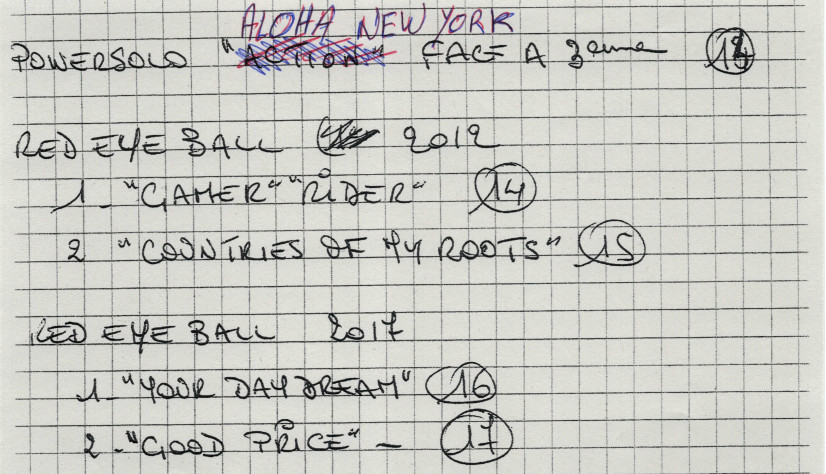 ALOHA NEW YORK
POWERSOLO "ACTION" FACE A 3eme 13
RED EYE BALL 2012
1_ "GAMER" "RIDER" 14
2 "COUNTRIES OF MY ROOTS" 15
RED EYE BALL 2017
1_ "YOUR DAY DREAM" 16
2_ "GOOD PRICE" - 17